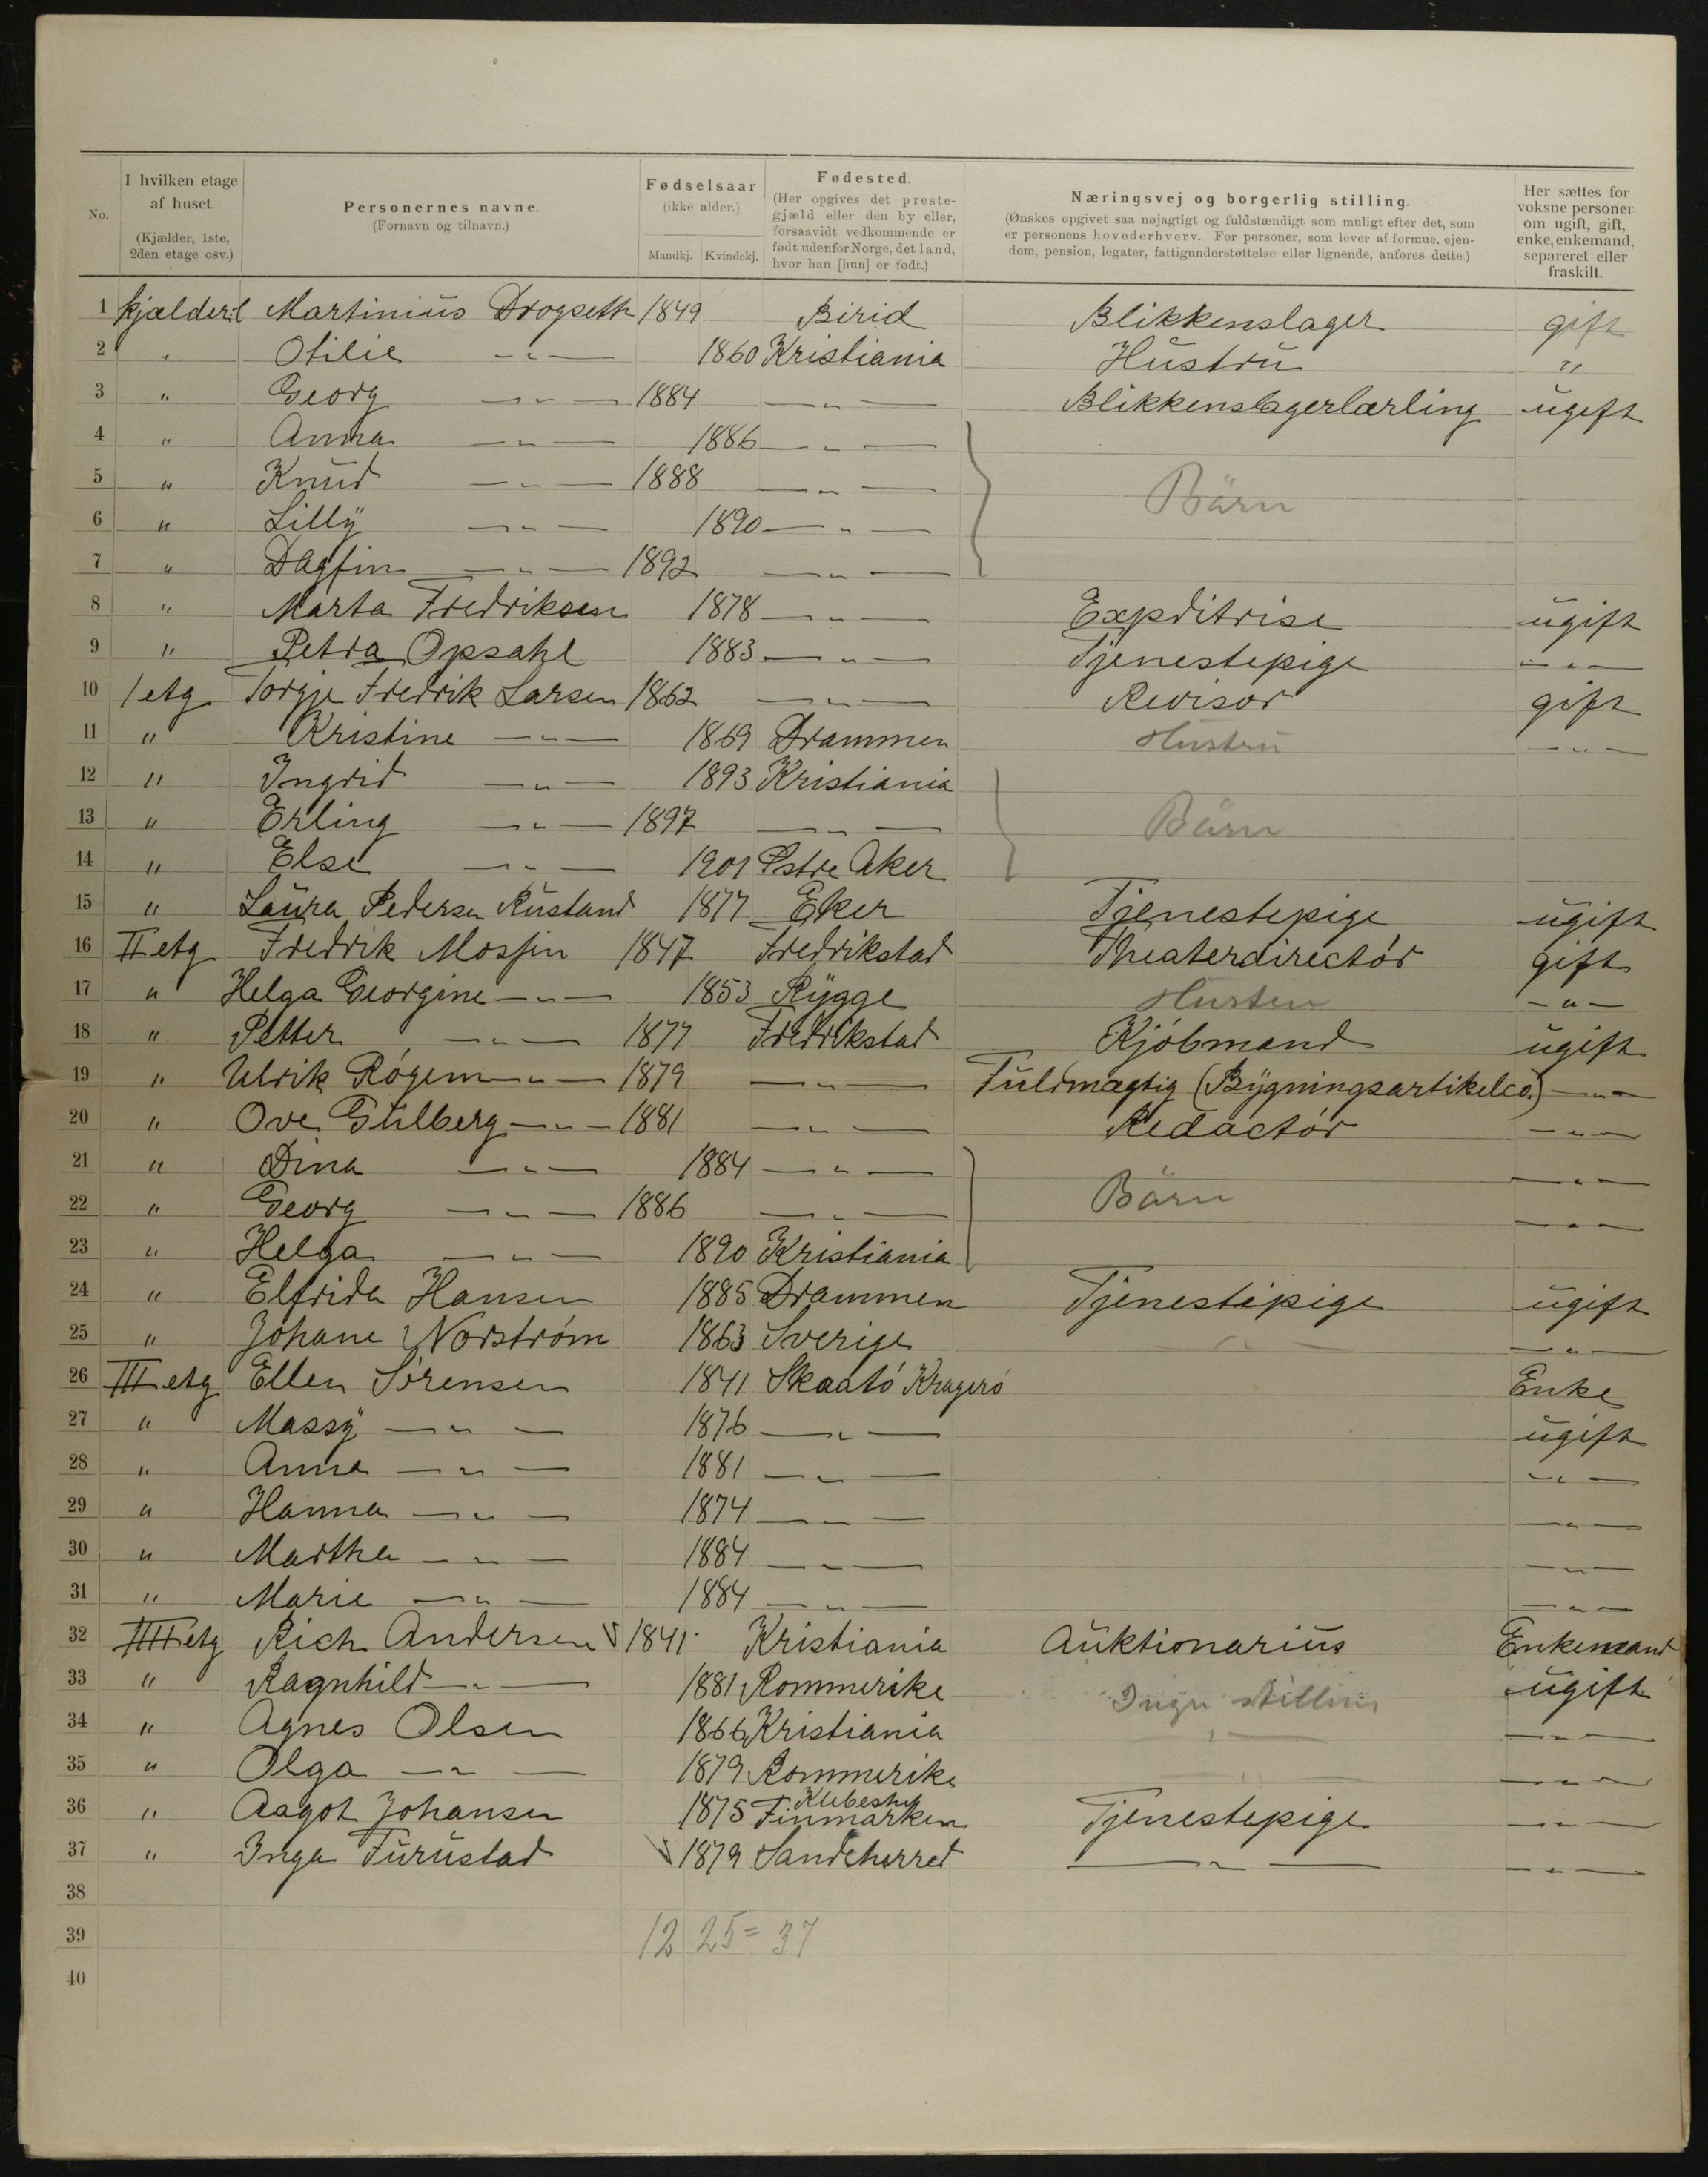 No.
I hvilken etage af huset.
(Kjælder, 1ste, 2den etage osv.)
Personernes navne.
(Fornavn og tilnavn.)
Fødselsaar
(ikke alder.)
Mandkj. Kvindekj.
Fødested.
(Her opgives det prestegjæld eller den by eller, forsaavidt vedkommende er født udenfor Norge, det land, hvor han [hun] er født.)
Næringsvej og borgerlig stilling.
(Ønskes opgivet saa nøjagtigt og fuldstændigt som muligt efter det, som er personens hovederhverv. For personer, som lever af formue, ejendom, pension, legater, fattigunderstøttelse eller lignende, anføres dette.)
Her sættes for voksne personer om ugift, gift, enke, enkemand, separeret eller fraskilt.
1 kjælder Martinius Drogseth 1849 Birid Blikkenslager gift
2 " Otilie —"— 1860 Kristiania Hustru "
3 " Georg —"— 1884 —"— Blikkenslagerlærling ugift
4 " Anna —"— 1886 —"—
5 " Knud —"— 1888 —"— Bärn
6 " Lilly —"— 1890 —"—
7 " Dagfin —"— 1892 —"—
8 " Marta Fredriksen 1878 —"— Expditrise ugift
9 " Petra Opsahl 1883 —"— Tjenestepige —"—
10 1 etg Torgje Fredrik Larsen 1862 —"— Revisor gift
11 " Kristine —"— 1869 Drammen Hustru —"—
12 " Ingrid —"— 1893 Kristiania
13 " Erling —"— 1897 —"— Bärn
14 " Else —"— 1901 Østre Aker
15 " Laura Pedersen Rustand 1877 Eker Tjenestepige ugift
16 II etg Fredrik Mosfin 1847 Fredrikstad Theaterdirectór gift
17 " Helga Georgine —"— 1853 Rygge Hustru —"—
18 " Petter —"— 1877 Fredrikstad Kjóbmand ugift
19 " Ulrik Rógem —"— 1879 —"— Fuldmægtig (Bygningsartikelco.) —"—
20 " Ove Gulberg —"— 1881 —"— Redactór —"—
21 " Dina —"— 1884 —"— —"—
22 " Georg —"— 1886 —"— Bärn —"—
23 " Helga —"— 1890 Kristiania
24 " Elfrida Hansen 1885 Drammen Tjenestepige ugift
25 " Johane Norstróm 1863 Sverige —"— —"—
26 III etg Ellen Sórensen 1841 Skaató Krageró Enke
27 " Massy —"— 1876 —"— ugift
28 " Anna —"— 1881 —"— —"—
29 " Hanna —"— 1874 —"— —"—
30 " Martha —"— 1884 —"— —"—
31 " Marie —"— 1884 —"— —"—
32 IIII etg Rich Andersen 1841 Kristiania Auktionarius Enkemand
33 " Ragnhild —"— 1881 Rommerike Ingen stilling ugift
34 " Agnes Olsen 1866 Kristiania —"— —"—
35 " Olga —"— 1879 Rommerike —"— —"—
36 " Aagot Johansen 1875 Finmarken Tjenestepige —"—
37 " Inga Furustad 1879 Sandeherred —"— —"—
38
39 12 25 = 37
40